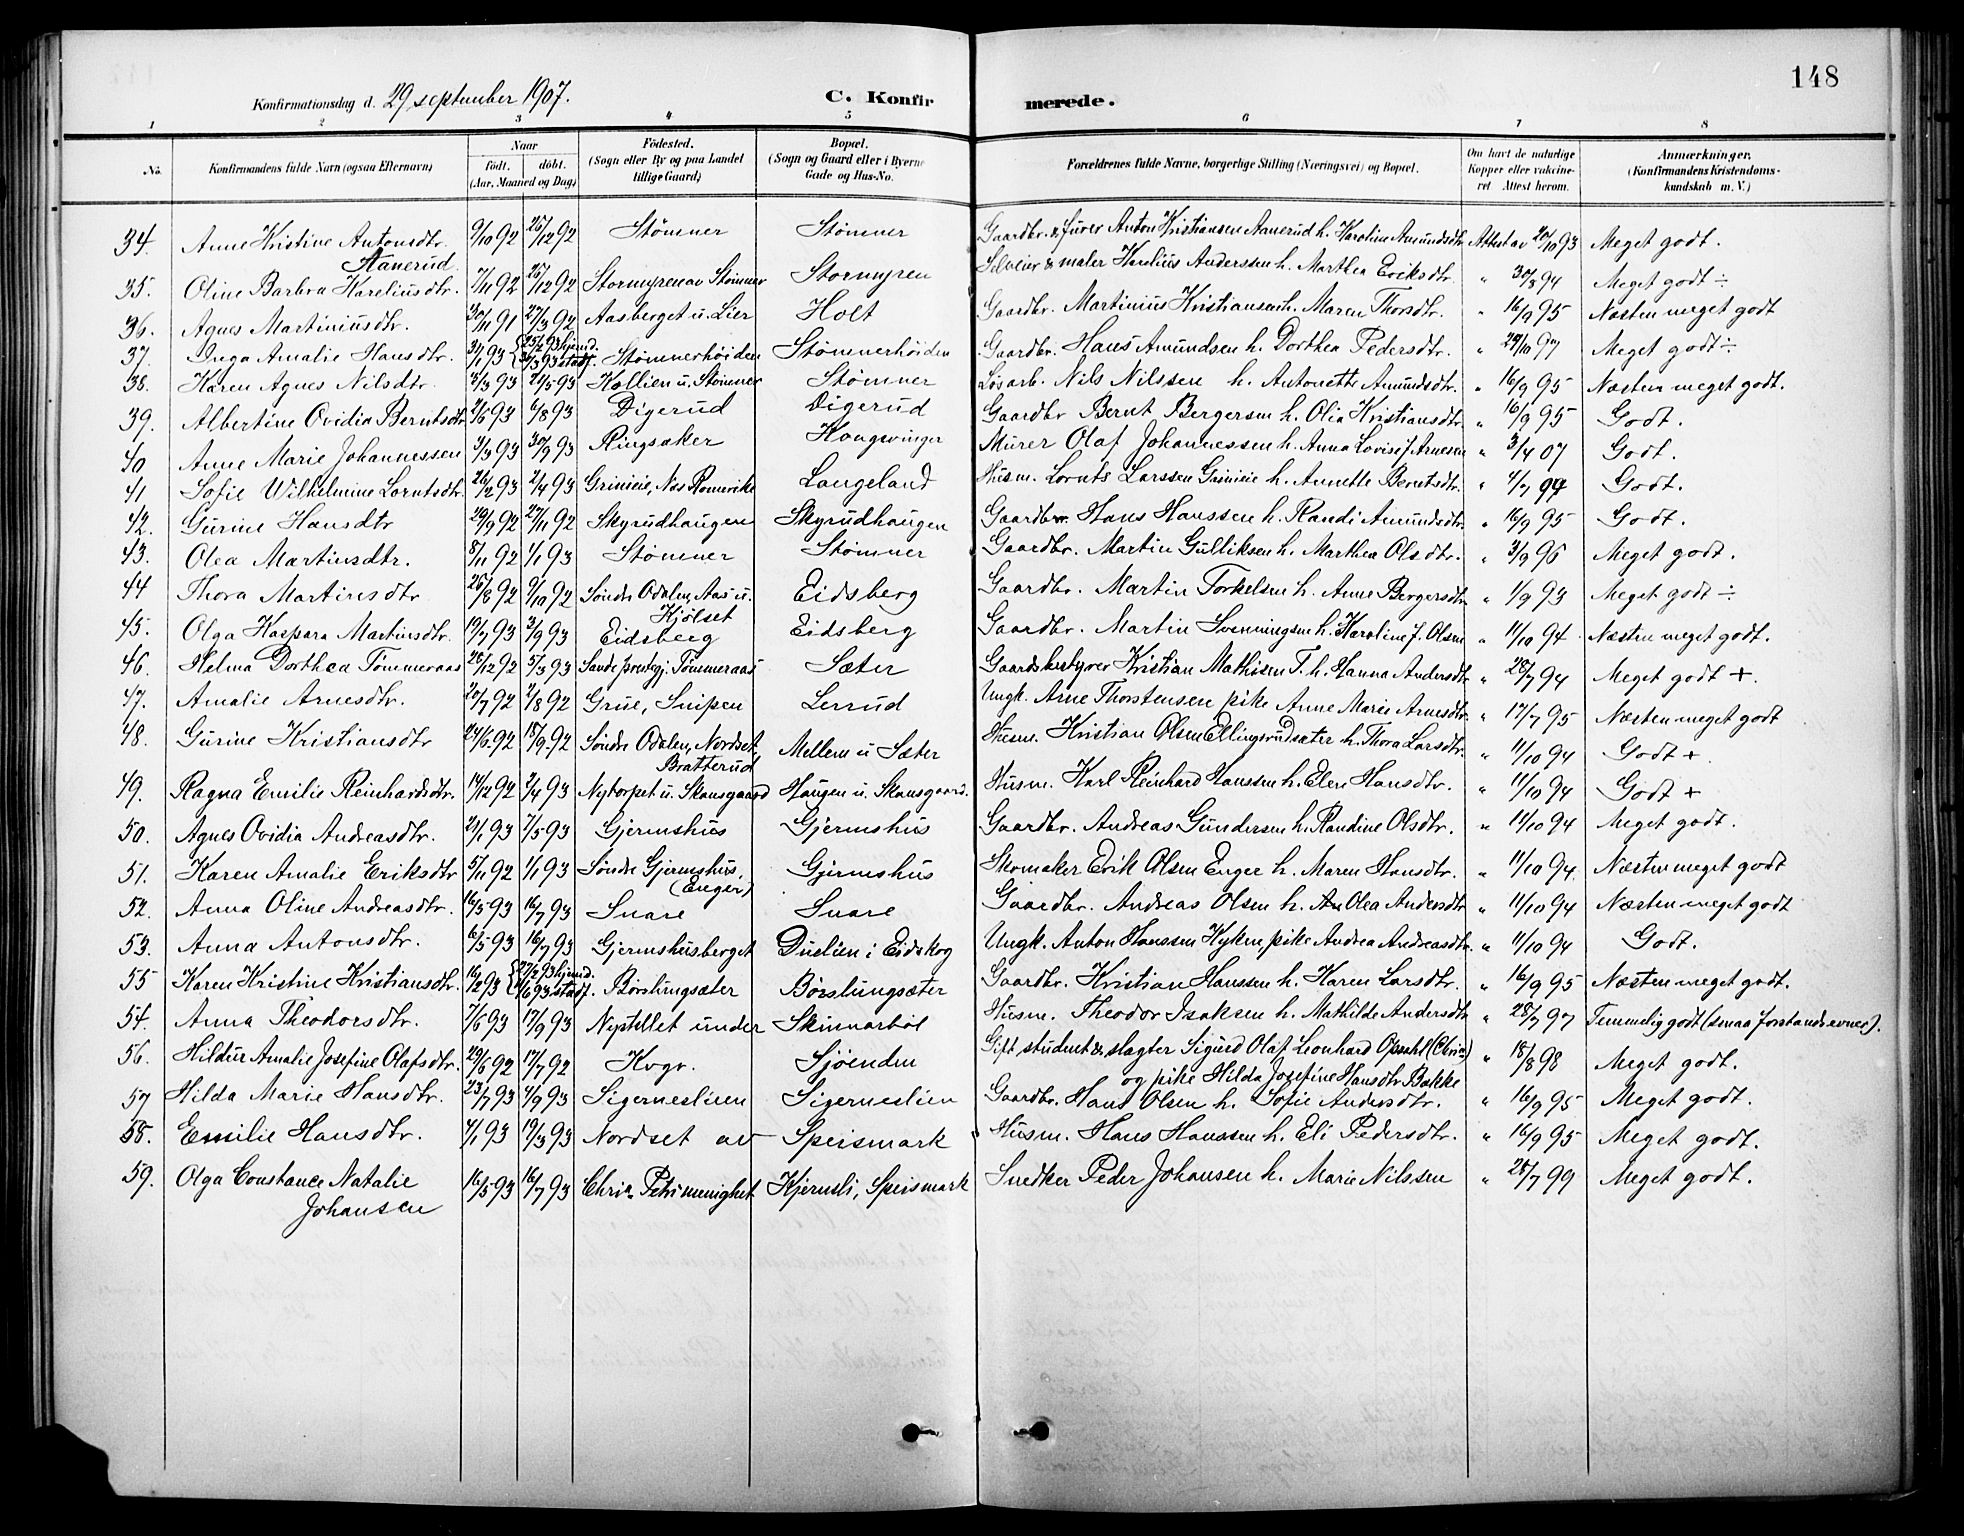 148
Konfirmationsdag d. 29 september 1907.
C. Konfirmerede.
1 2 3 4 5 6 7 8
No. Konfirmandens fulde Navn (ogsaa Efternavn) Naar födt. döbt. (Aar, Maaned og Dag) Födested. (Sogn eller By og paa Landet tillige Gaard) Bopæl. (Sogn og Gaard eller i Byerne Gade og Hus-No. Forældrenes fulde Navne, borgerlige Stilling (Næringsvei) og Bopæl. Om havt de naturlige Kopper eller vakcineret Attest herom. Anmærkninger. (Konfirmandens Kristendomskundskab m. V.)
34. Anne Kristine Antonsdtr. Aanerud 9/10 92 26/12 92 Stømner Stømner Gaardbr. & furer Anton Kristiansen Aanerud h. Karoline Amundsdtr. Attest av 20/10 93 Meget godt.
35. Oline Barbra Kareliusdtr. 7/11 92 26/12 92 Stormyren av Stømner Stormyren Selveier & maler Karelius Anderssen h. Marthea Eriksdtr. " 30/8 94 Meget godt ÷
36. Agnes Martiniusdtr. 30/11 91 27/3 92 Aasberget u. Lier Holt Gaardbr. Martinius Kristiansen h. Maren Thorsdtr. " 16/9 95 Næsten meget godt
37. Inga Amalie Hansdtr. 3/1 93 {25/2 93 hjemd. 31/3 93 stadf. Stømnerhöiden Stømnerhöiden Gaardbr. Hans Amundsen h. Dorthea Pedersdtr. " 29/10 97 Meget godt ÷
38. Karen Agnes Nilsdtr. 2/3 93 21/5 93 Kollien u. Stømner Stømner Løsarb. Nils Nilssen h. Antonette Amundsdtr. " 16/9 95 Næsten meget godt.
39. Albertine Ovidia Berntsdtr 2/6 93 6/8 93 Digerud Digerud Gaardbr Bernt Bergersen h. Olia Kristiansdtr. " 16/9 95 Godt.
40 Anne Marie Johannessen 4/3 93 30/9 93 Ringsaker Kongsvinger Murer Olaf Johannessen h. Anna Lovise f. Arnesen " 3/4 07 Godt.
41 Sofie Wilhelmine Lorntsdtr. 26/2 93 2/4 93 Grinieie, Næs Romerike Langeland Husm. Lornts Larssen h. Annette Berntsdtr. " 4/7 94 Godt.
42. Gurine Hansdtr 29/9 92 27/11 92 Skyrudhaugen Skyrudhaugen Gaardbr. Hans Hanssen h. Randi Amundsdtr. " 16/9 95 Godt.
43. Olea Martinsdtr. 8/11 92 1/1 93 Stømner Stømner Gaardbr. Martin Gulliksen h. Marthea Olsdtr. " 3/9 96 Meget godt.
44 Thora Martinsdtr 26/8 92 9/10 92 Söndre Odalen, Aas u. Kjölset Eidsberg Gaardbr. Martin Torkelsen h. Anne Bergersdtr " 1/9 93 Meget godt ÷
45. Olga Kaspara Martinsdtr. 19/7 93 3/9 93 Eidsberg Eidsberg Gaardbr. Martin Svenningsen h. Karoline f. Olsen " 11/10 94. Næsten meget godt.
46. Helma Dorthea Tömmeraas 26/12 92 5/3 93 Sande prestegj. Tömmeraas Sæter Gaardsbestyrer Kristian Mathisen T. h. Hanna Andersdtr " 28/7 94 Meget godt +.
47. Amalie Arnesdtr. 20/7 92 /8 92 Grue, Snipen Lerrud Ungk. Arne Thorstensen pike Anne Marie Arnesdtr. " 17/7 95 Næsten meget godt
48. Gurine Kristiansdtr 24/6 92 18/9 92 Söndre Odalen, Nordset, Bratterud Mellem u Sæter Husm. Kristian Olsen Ellingsrudsæter h. Thora Larsdtr. " 11/10 94 Godt +
49. Ragna Emilie Reinhardsdtr. 14/12 92 2/4 93 Nytorpet u. Skansgaard Haugen u. Skansgaard. Husm. Karl Reinhard Hanssen h. Elen Hansdtr. " 11/10 94 Godt +
50. Agnes Ovidia Andreasdtr. 21/1 93 7/5 93 Gjermshus Gjermshus Gaardbr. Andreas Gundersen h. Randine Olsdtr. " 11/10 94 Meget godt.
51. Karen Amalie Eriksdtr 5/11 92 1/1 93 Söndre Gjermshus, (Enger) Gjermshus Skomaker Erik Olsen Enger h. Maren Hansdtr. " 11/10 94. Næsten meget godt
52. Anna Oline Andreasdtr. 16/5 93 16/7 93 Snare Snare Gaardbr. Andreas Olsen h. Olea Andersdtr " 11/10 94 Næsten meget godt
53. Anna Antonsdtr. 6/5 93 16/7 93 Gjermshusberget Duslien i Eidskog Ungk. Anton Hanssen pike Andrea Andreasdtr. " 11/10 94 Godt.
55 Karen Kristine Kristiansdtr. 16/2 93 {27/2 93 hjemd. /6 93 stadf. Börslungsæter Börslungsæter Gaardbr. Kristian Hanssen h. Karen Larsdtr. " 16/9 95 Næsten meget godt.
54. Anna Theodorsdtr. 7/6 93 17/9 93 Nystellet under Skinnarböl Husm. Theodor Isaksen h. Mathilde Andersdtr " 28/7 97 Temmelig godt (smaa forstandsevner).
56. Hildur Amalie Josefine Olafsdtr. 29/6 92 17/7 92 Kvgr. Sjöenden Gift student & slagter Sigurd Olaf Leonhard Opsahl (Chria) og pike Hilda Josefine Hansdtr Bakke " 18/8 98 Meget godt.
57 Hilda Marie Hansdtr. 23/7 93 4/9 93 Sigerneslien Sigerneslien Gaardbr. Hans Olsen h. Sofie Andersdtr. " 16/9 95 Meget godt.
58. Emilie Hansdtr. 4/1 93 19/3 93 Nordset av Speismark Husm. Hans Hanssen h. Eli Pedersdtr. " 16/9 95 Meget godt.
59. Olga Constance Natalie Johansen 16/5 93 16/7 93 Chria Petri menighet Kjernsli, Speismark Snedker Peder Johansen h. Marie Nilssen " 28/7 99 Meget godt.